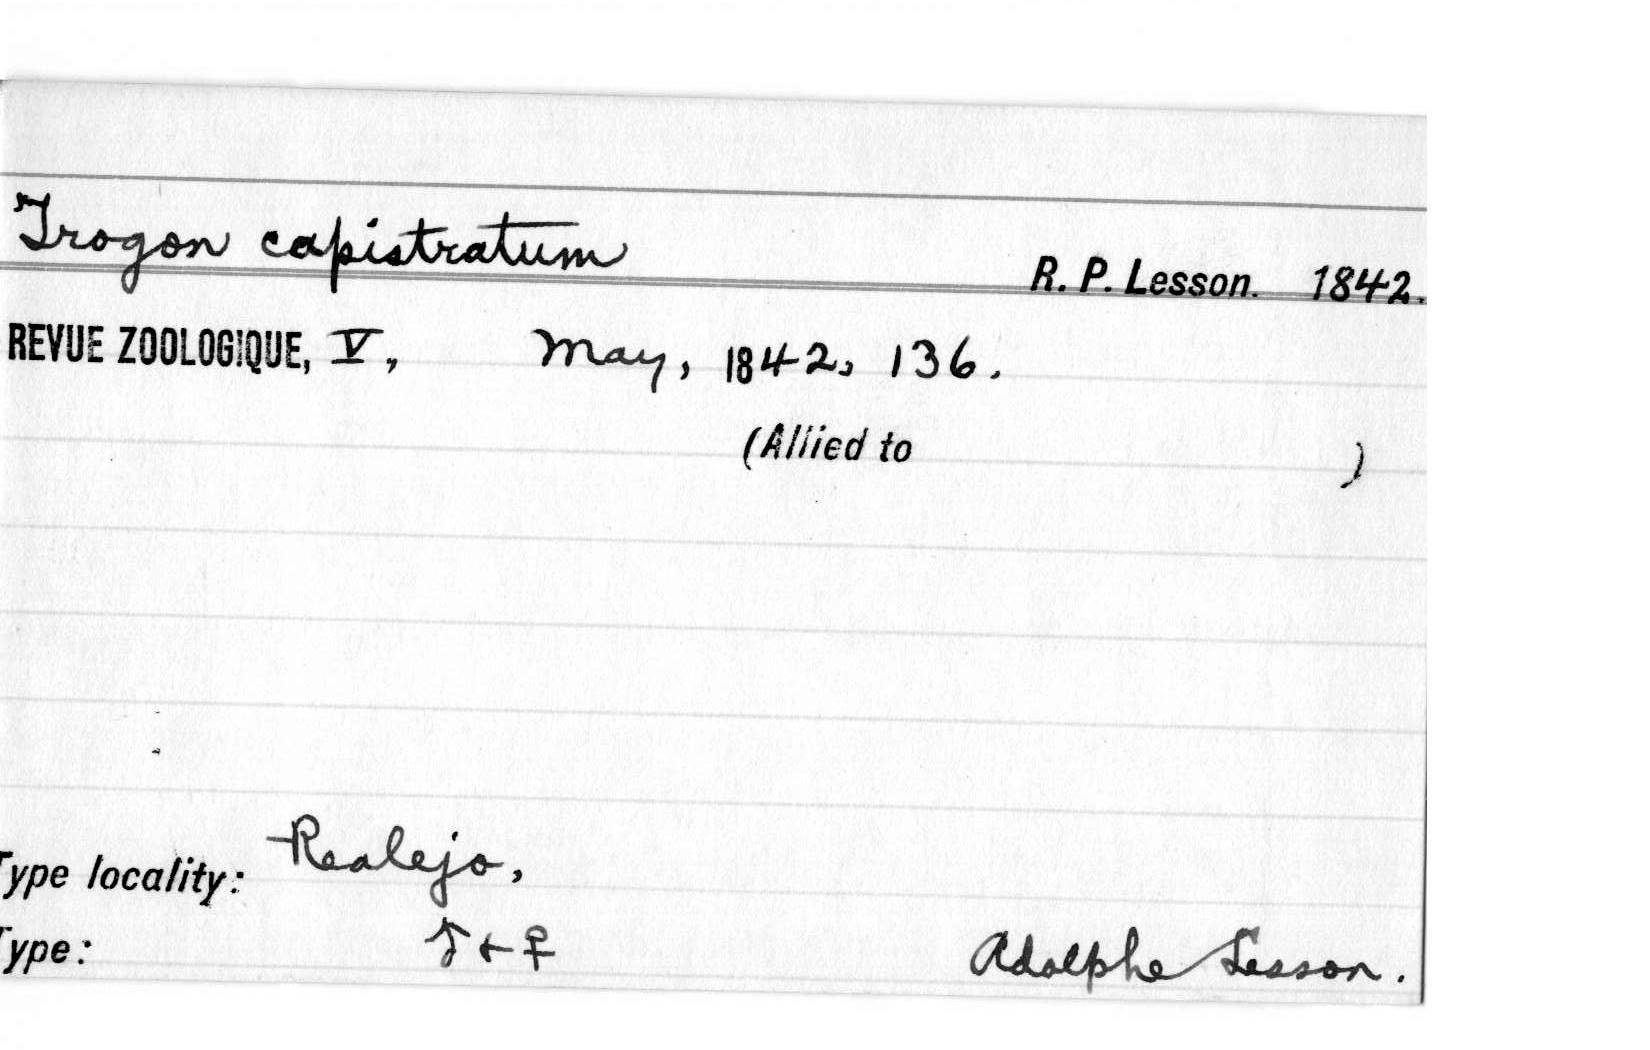 Trogon capistratum
R. P. Lesson. 1842.
REVUE ZOOLOGIQUE, V, May, 1842, 136.
(Allied to )
Type locality: Realejo,
Type: ♂ + ♀ Adolphe Lesson.